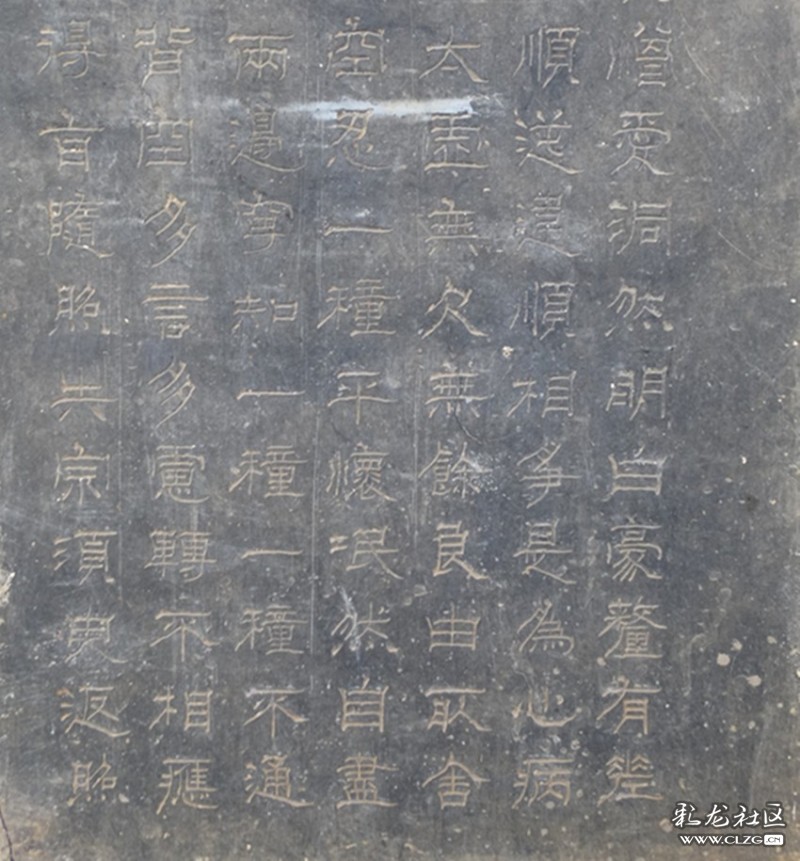 憎愛洞然明白豪釐有差
順逆違順相爭是為心病
太虛無欠無餘良由取舍
空忍一種平懷泯然自盡
兩邊寧知一種一種不通
背空多言多慮轉不相應
得旨隨照失宗須臾返照
彩龙社区
WWW.CLZG.CN